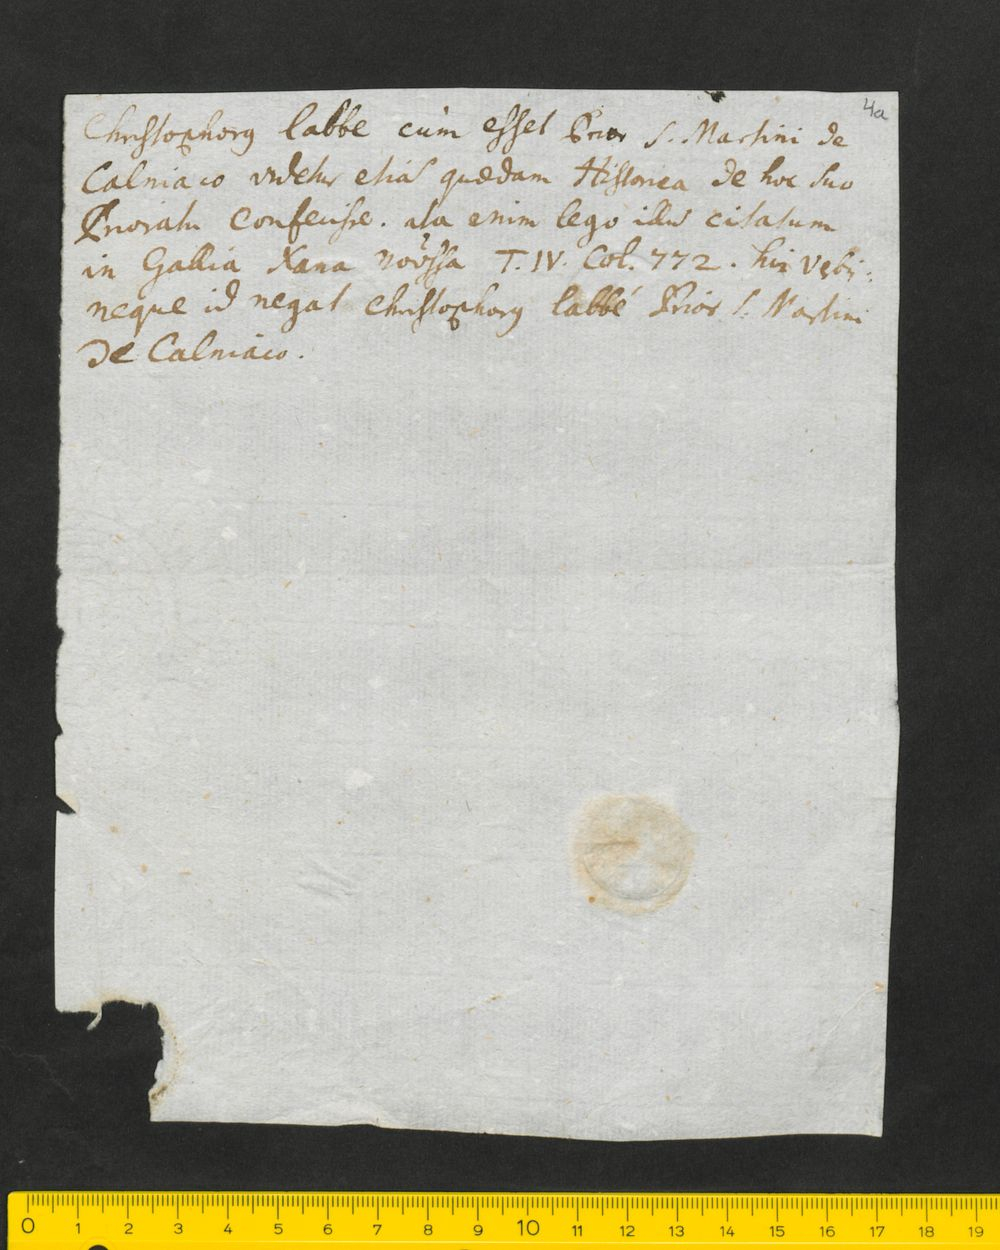 4a
Christophorg labbe cum esset Prior S. Martini de
Calniaco videtur etiā quedam Historica de hoc suo
Prioratu confecisse. ita enim lego illū citatum
in Gallia Xana T. IV. Col. 772. his vębis:
neque id negat Christophorg labbé Prior S. Martini
de Calniaco.
0 1 2 3 4 5 6 7 8 9 10 11 12 13 14 15 16 17 18 19